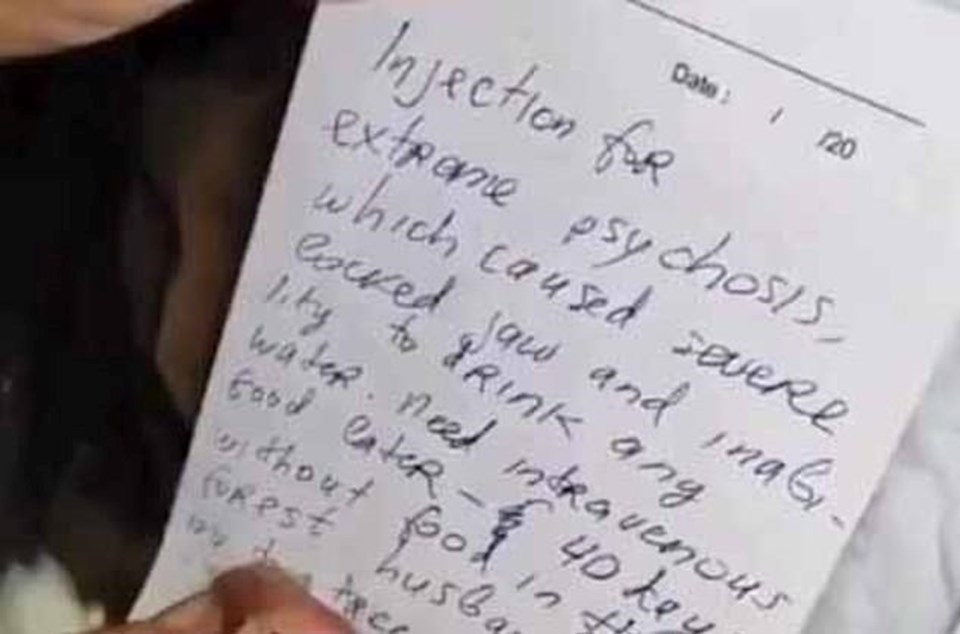 Date: / /20
Injection for
extrame psychosis,
which caused severe
locked jaw and inabi-
lity to drink any
water. need intravenous
Good eater - 40 hey
without food in th
forest husba